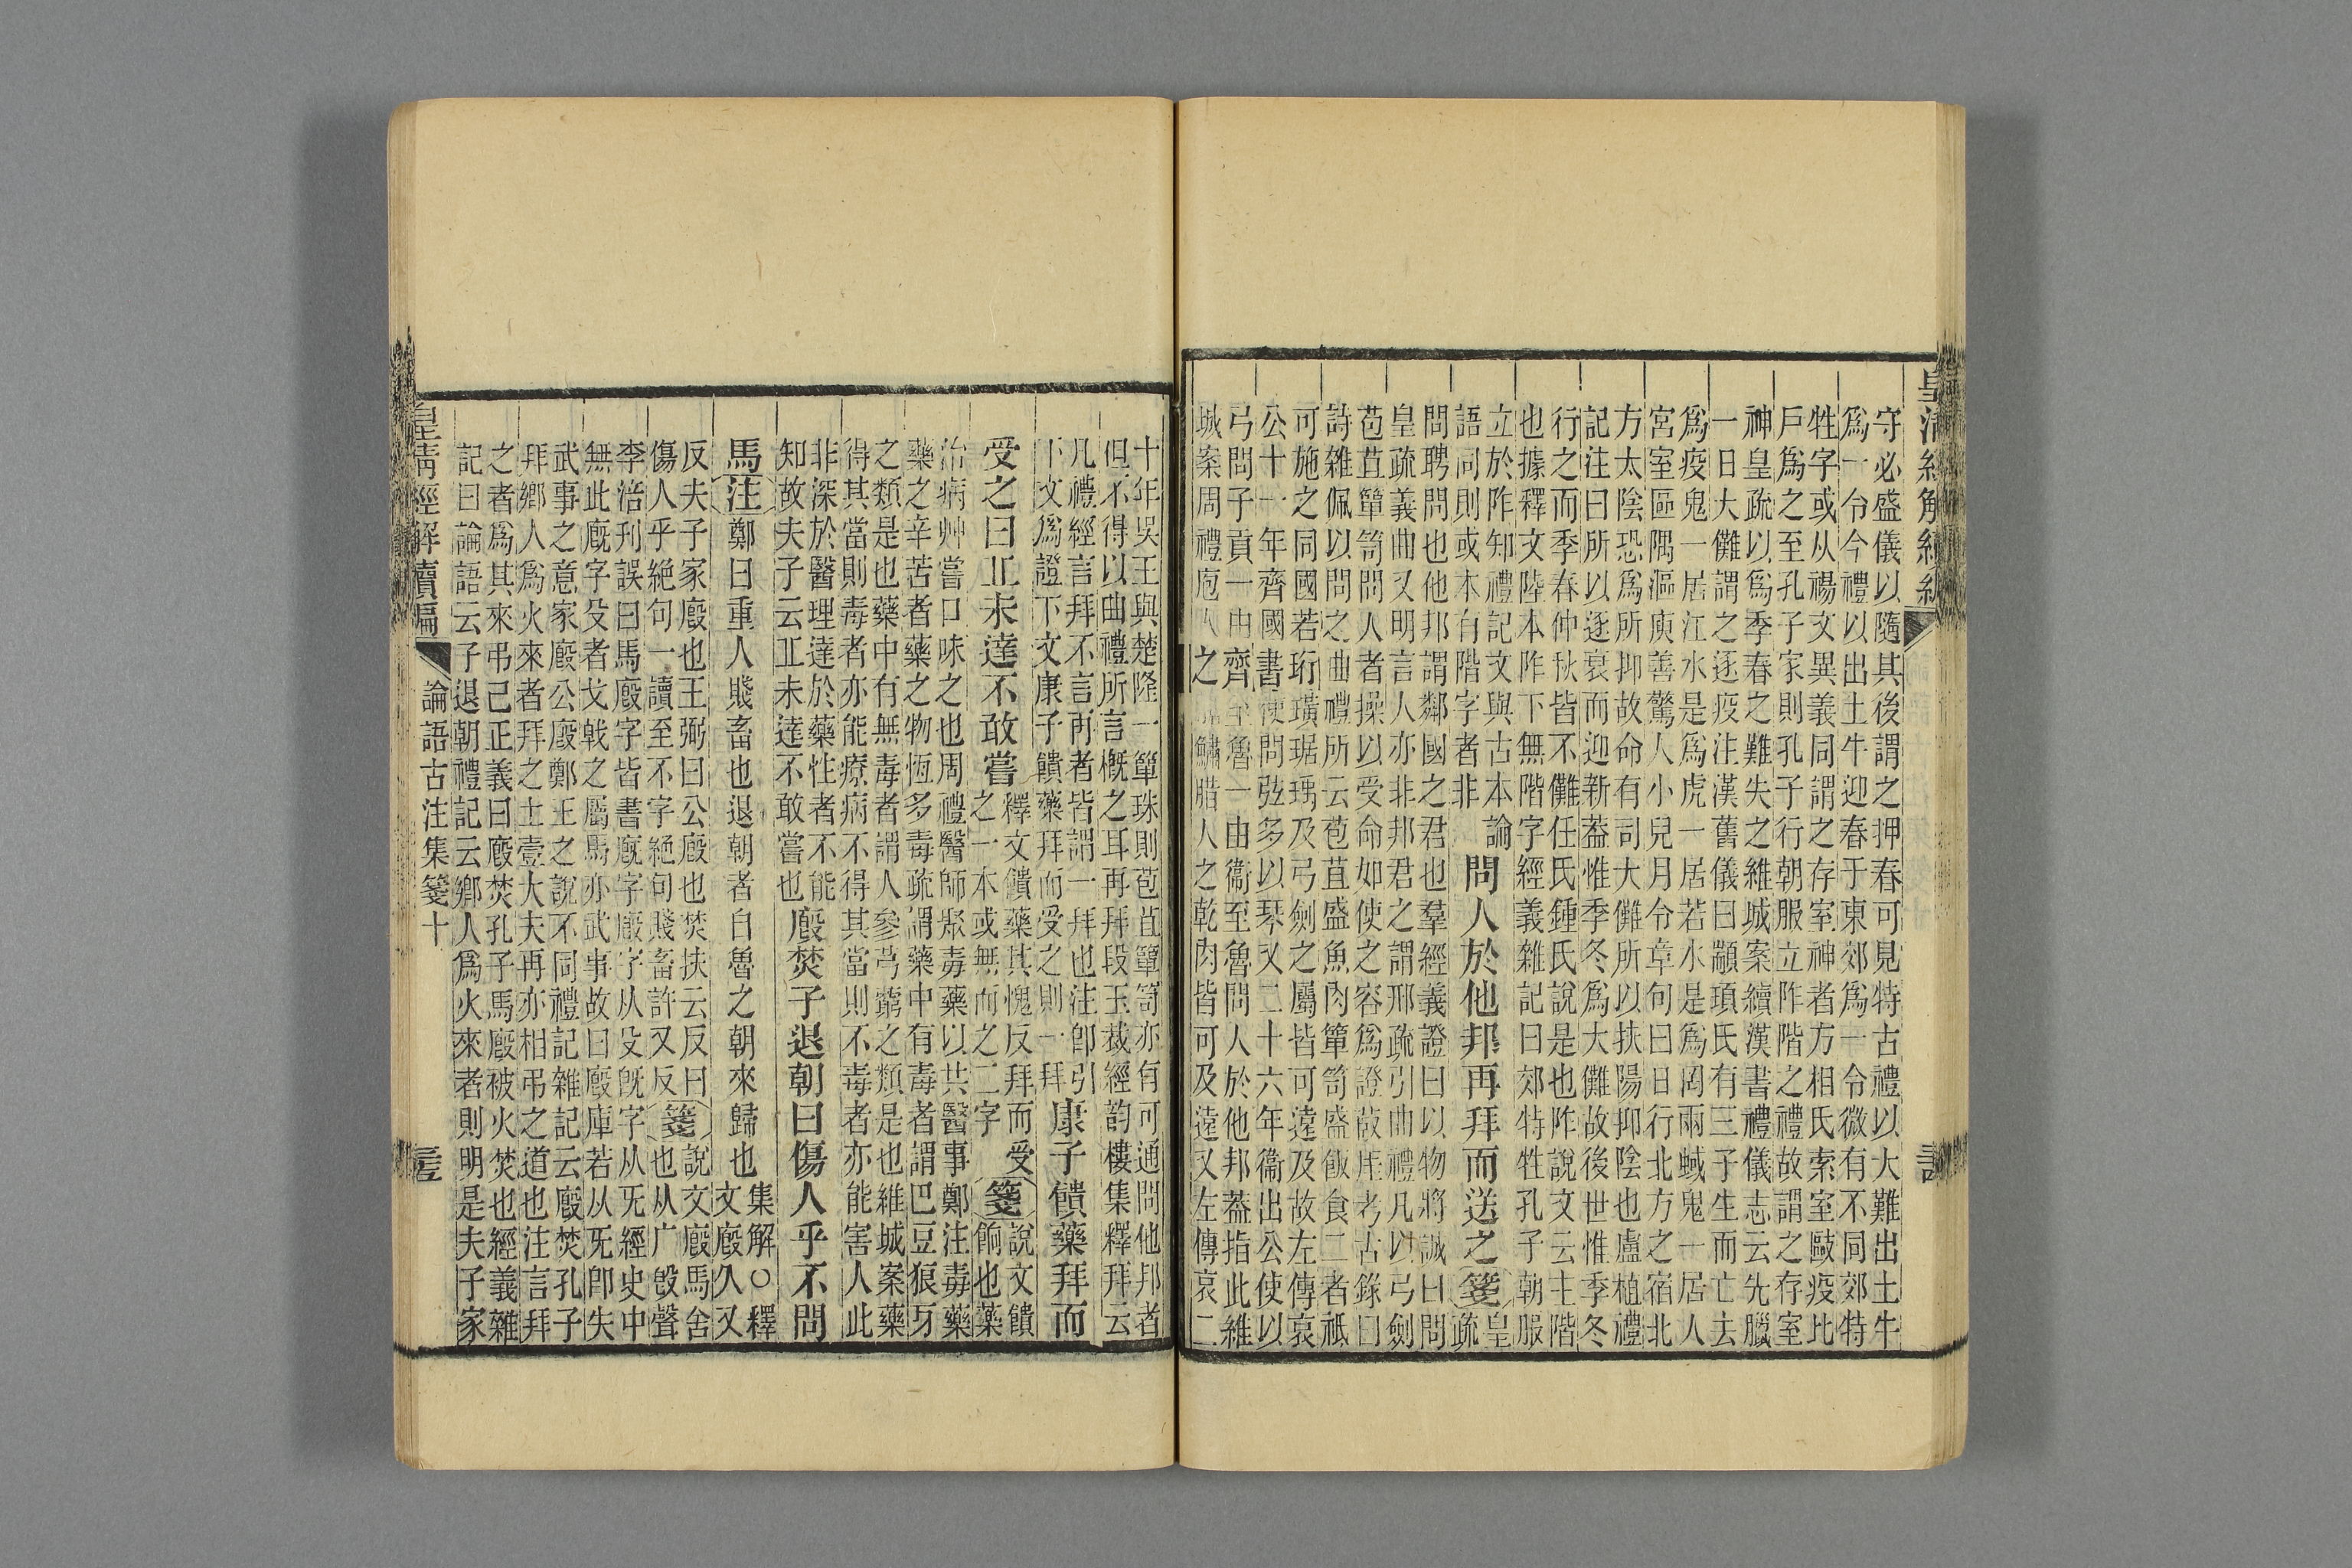 皇清經解續編
守必盛儀以隨其後謂之押春可見特古禮以大難出土牛
爲一令今禮以出土牛迎春于東郊爲一令微有不同郊特
牲字或从禓文異義同謂之存室神者方相氏索室敺疫比
戶爲之至孔子家則孔子行朝服立阼階之禮故謂之存室
神皇疏以爲季春之難失之維城案續漢書禮儀志云先臘
一日大儺謂之逐疫注漢舊儀曰顓頊氏有三子生而亡去
爲疫鬼一居江水是爲虎一居若水是爲罔兩蜮鬼一居人
宮室區隅漚庾善驚人小兒月令章句曰日行北方之宿北
方太陰恐爲所抑故命有司大儺所以扶陽抑陰也盧植禮
記注曰所以逐衰而迎新葢惟季冬爲大儺故後世惟季冬
行之而季春仲秋皆不儺任氏鍾氏說是也阼說文云主階
也據釋文陸本阼下無階字經義雜記曰郊特牲孔子朝服
立於阼知禮記文與古本論
語同則或本有階字者非
問人於他邦再拜而送之
箋
皇
疏
問聘問也他邦謂鄰國之君也羣經義證曰以物將誠曰問
皇疏義曲又明言人亦非邦君之謂邢疏引曲禮凡以弓劍
苞苴簞笥問人者操以受命如使之容爲證敤厓考古錄曰
詩雜佩以問之曲禮所云苞苴盛魚肉簞笥盛飯食二者祇
可施之同國若珩璜琚瑀及弓劍之屬皆可遠及故左傳哀
公十一年齊國書使問弦多以琴又二十六年衞出公使以
弓問子貢一由齊至魯一由衞至魯問人於他邦葢指此維
城案周禮庖人之鱐腊人之乾肉皆可及遠又左傳哀二
十年吳王與楚隆一簞珠則苞苴簞笥亦有可通問他邦者
但不得以曲禮所言槪之耳再拜段玉裁經韵樓集釋拜云
凡禮經言拜不言再者皆謂一拜也注卽引
下文爲證下文康子饋藥拜而受之則一拜
康子饋藥拜而
受之曰丘未達不敢嘗
釋文饋藥其愧反拜而受
之一本或無而之二字
箋
說文饋
餉也藥
治病艸嘗口味之也周禮醫師聚毒藥以共醫事鄭注毒藥
藥之辛苦者藥之物恆多毒疏謂藥中有毒者謂巴豆狼牙
之類是也藥中有無毒者謂人參芎藭之類是也維城案藥
得其當則毒者亦能療病不得其當則不毒者亦能害人此
非深於醫理達於藥性者不能
知故夫子云丘未達不敢嘗也
廄焚子退朝曰傷人乎不問
馬
注
鄭曰重人賤畜也退朝者自魯之朝來歸也
集解○釋
文廄久又
反夫子家廄也王弼曰公廄也焚扶云反曰
傷人乎絕句一讀至不字絕句賤畜許又反
箋
說文廄馬舍
也从广㲃聲
李涪刊誤曰馬廄字皆書廐字廄字从殳旣字从旡經史中
無此廐字殳者戈戟之屬馬亦武事故曰廄庫若从旡卽失
武事之意家廄公廄鄭王之說不同禮記雜記云廄焚孔子
拜鄉人爲火來者拜之士壹大夫再亦相弔之道也注言拜
之者爲其來弔己正義曰廄焚孔子馬廄被火焚也經義雜
記曰論語云子退朝禮記云鄉人爲火來者則明是夫子家
皇清經解續編
論語古注集箋十